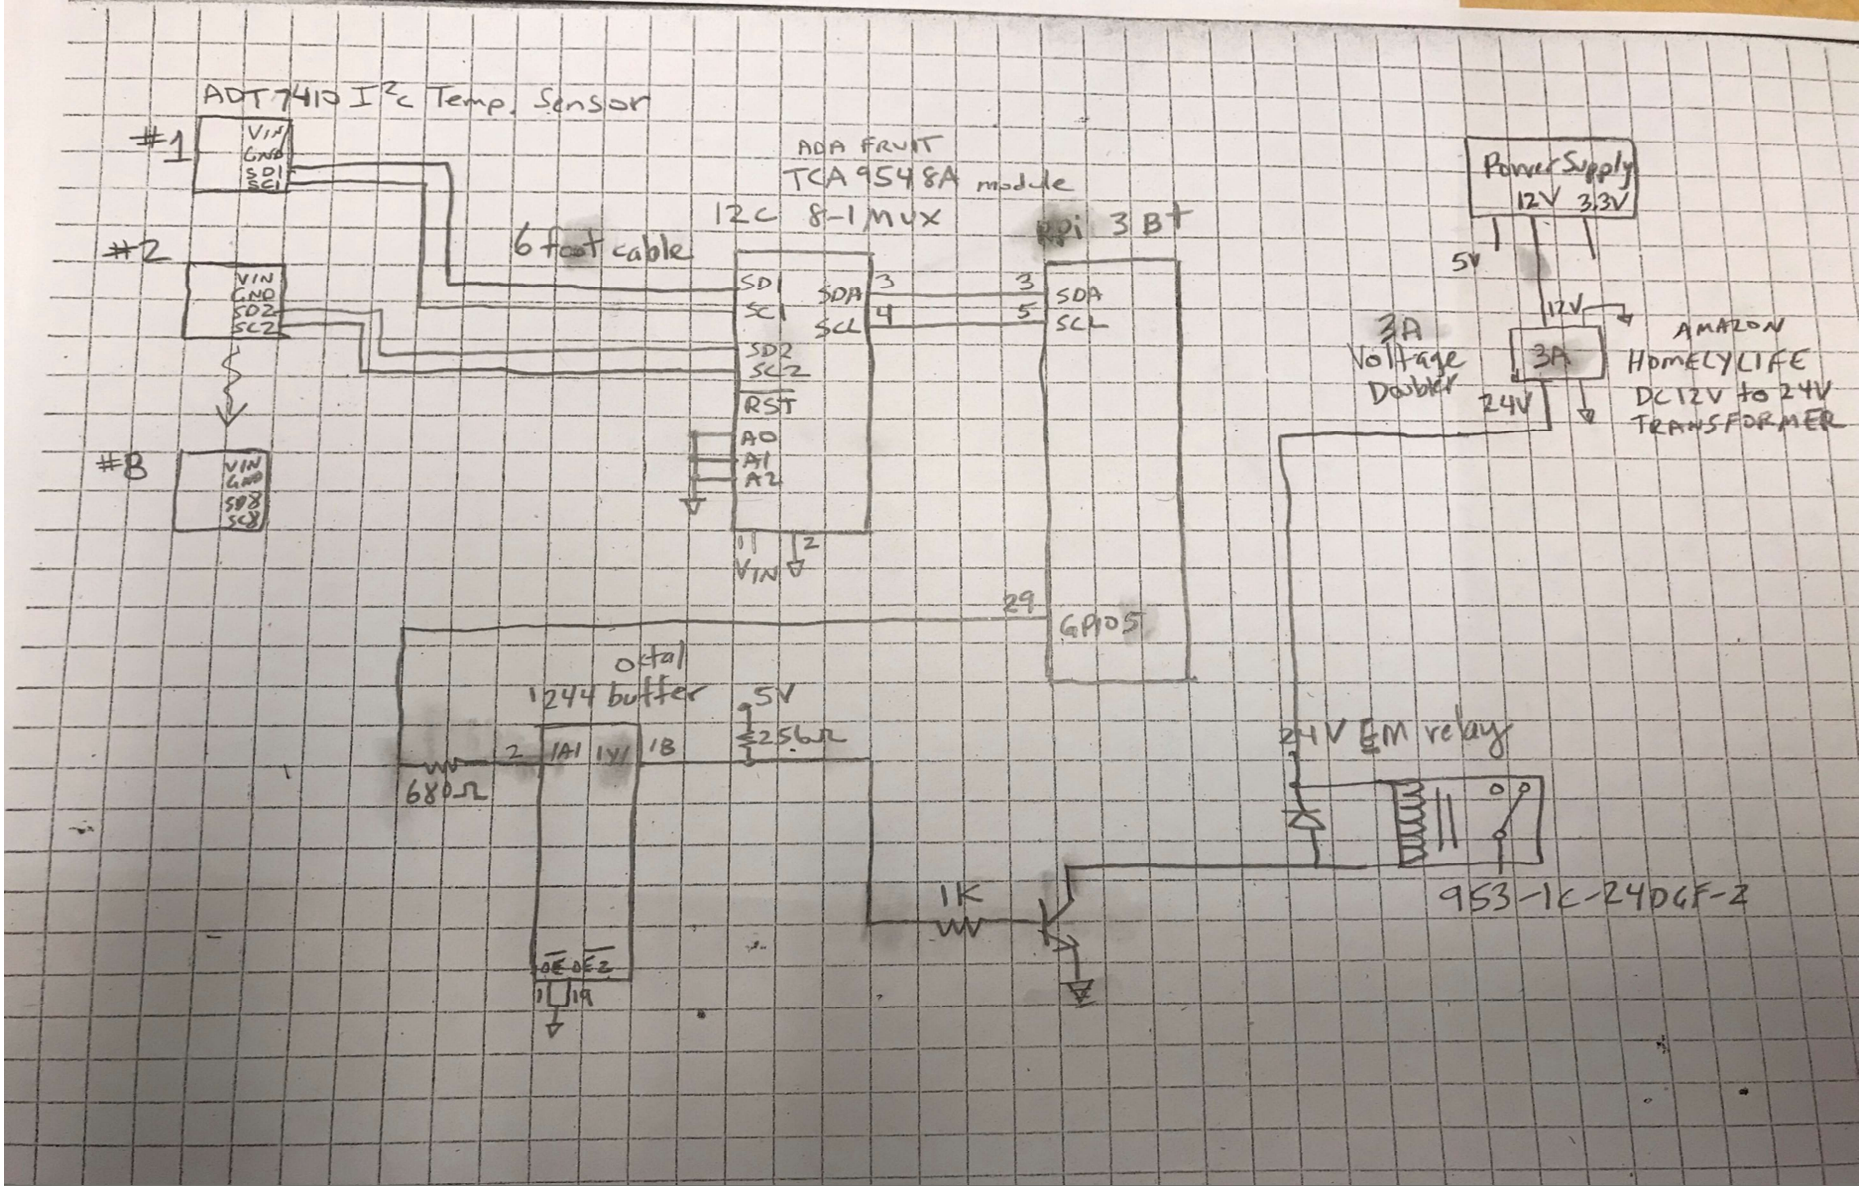 ADT7410 I²C Temp. Sensor
#1
VIN
GND
SD1
SC1
#2
VIN
GND
SD2
SC2
#8
VIN
GND
SD8
SC8
6 foot cable
ADA FRUIT
TCA9548A module
I2C 8-1 MUX
SD1
SC1
SD2
SC2
RST
A0
A1
A2
SDA
SCL
3
4
1
2
VIN
RPi 3 B+
3
5
SDA
SCL
29
GPIO5
Power Supply
12V 3.3V
5V
12V
3A
Voltage
Doubler
3A
24V
AMAZON
HOMELYLIFE
DC12V to 24V
TRANSFORMER
octal
'244 buffer
680Ω
2
1A1
1Y1
18
5V
256Ω
OE OE2
1
19
1K
24V EM relay
953-1C-24DGF-2